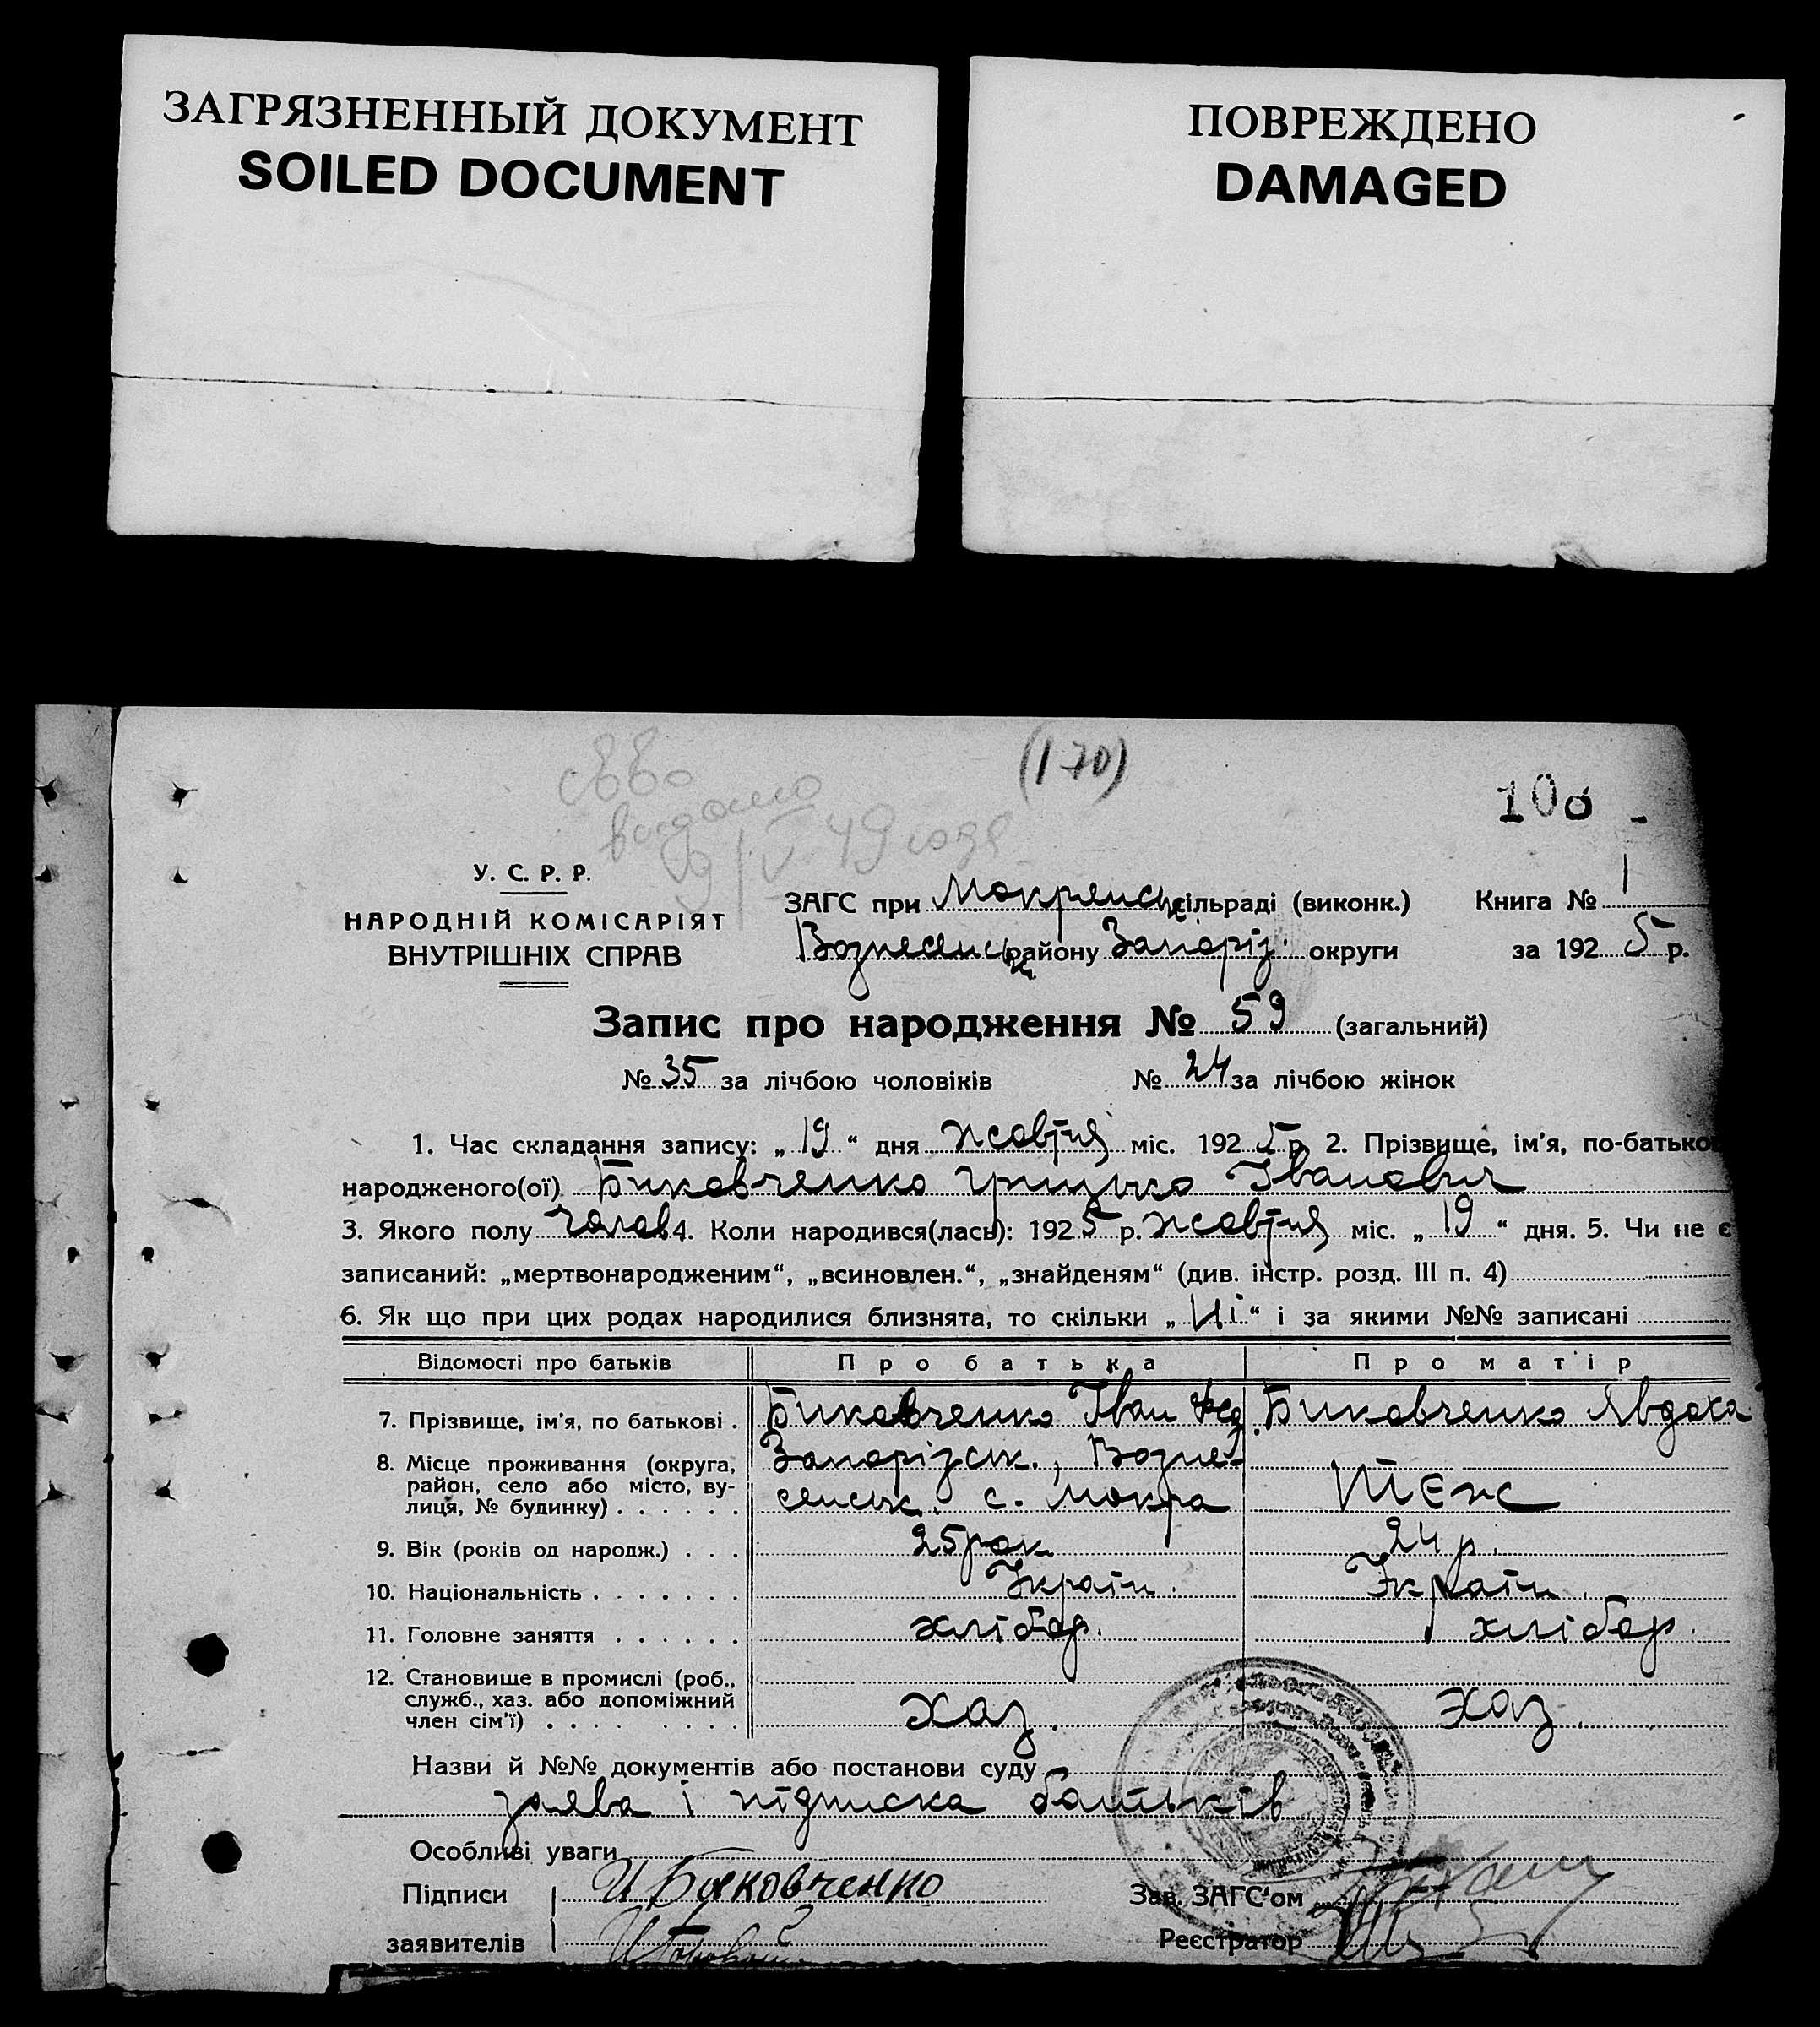 ЗАГРЯЗНЕННЫЙ ДОКУМЕНТ
SOILED DOCUMENT
ПОВРЕЖДЕНО
DAMAGED
(170)
108
видано
У. С. Р. Р.
НАРОДНІЙ КОМІСАРІЯТ
ВНУТРІШНІХ СПРАВ
ЗАГС при Мокрянськ сільраді (виконк.) Книга № 1
Вознесенськ району Запоріз. округи за 1925 р.
Запис про народження № 59 (загальний)
№ 35 за лічбою чоловіків № 24 за лічбою жінок
1. Час складання запису: „19“ дня жовтня міс. 1925 р. 2. Прізвище, ім'я, по-батько
народженого(ої) Биковченко Грицько Іванович
3. Якого полу чолов 4. Коли народився(лась): 1925 р. жовтня міс. „19“ дня. 5. Чи не є
записаний: „мертвонародженим“, „всиновлен.“, „знайденям“ (див. інстр. розд. III п. 4)
6. Як що при цих родах народилися близнята, то скільки „Ні“ і за якими №№ записані
Відомості про батьків Про батька Про матір
7. Прізвище, ім'я, по батькові . Биковченко Іван Фед. Биковченко Явдоха
8. Місце проживання (округа, Запорізськ., Возне-
район, село або місто, ву- сенськ. с. Мокра теж
лиця, № будинку) . . . . . .
9. Вік (років од народж.) . . . 25 рок 24 р.
10. Національність . . . . . . . Україн. Україн.
11. Головне заняття . . . . . . хлібор. хлібор.
12. Становище в промислі (роб.,
служб., хаз. або допоміжний хаз. хаз.
член сім'ї) . . . . . . . . .
Назви й №№ документів або постанови суду
заява і підписка батьків
Особливі уваги
Підписи И Биковченко Зав. ЗАГС'ом
заявителів Реєстратор